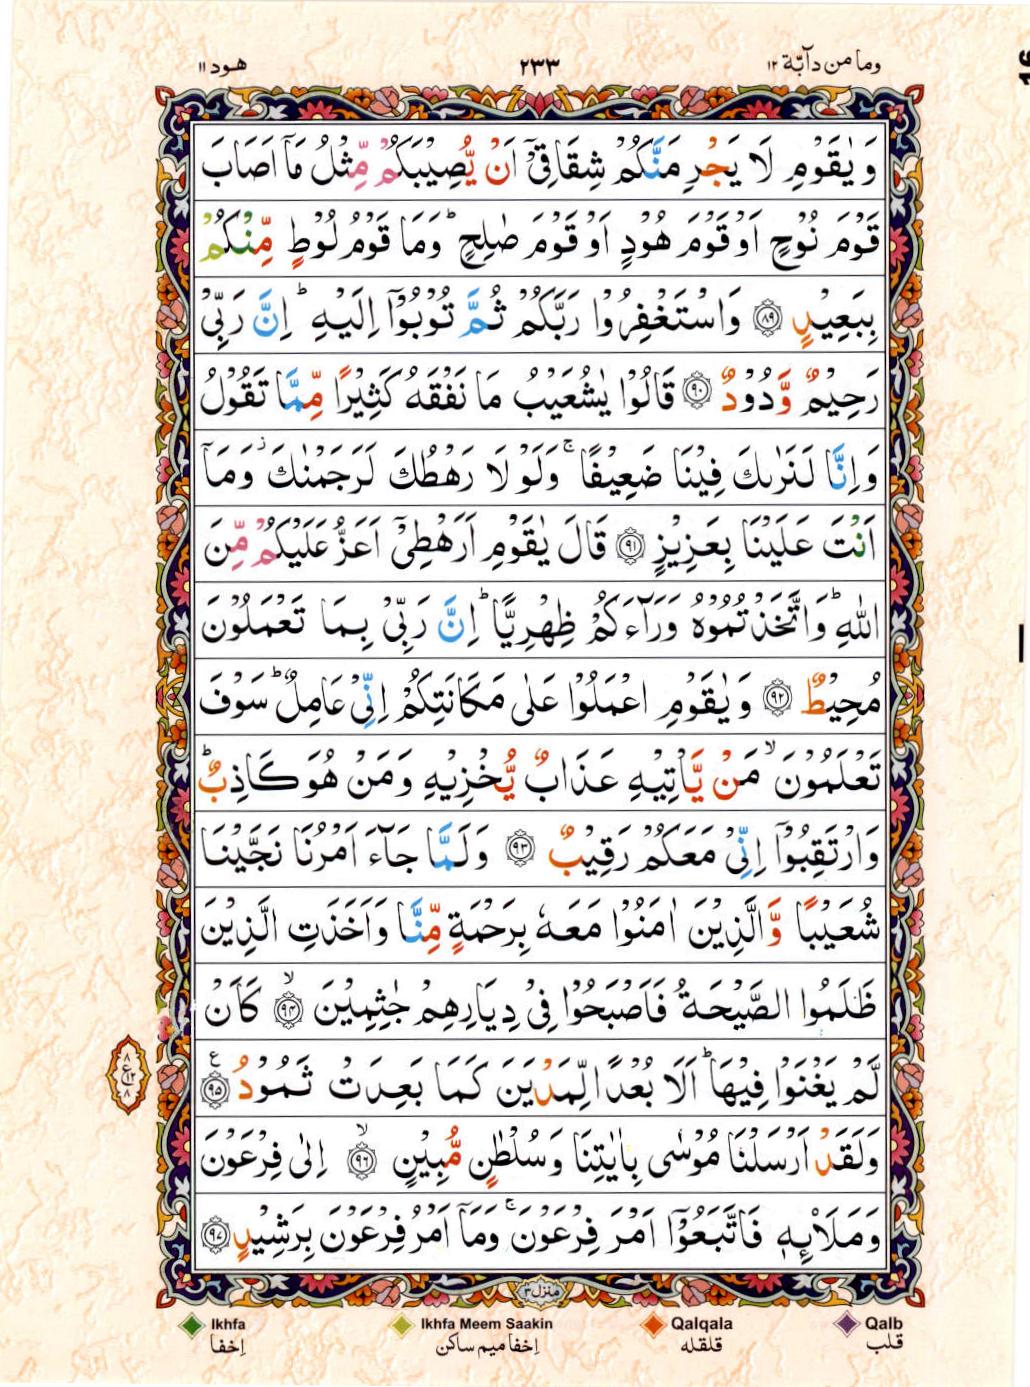 وما من دآبّة ١٢
٢٣٣
هود ١١
16
وَ يٰقَوْمِ لَا يَجْرِ مَنَّكُمْ شِقَاقِيْٓ اَنْ يُّصِيْبَكُمْ مِّثْلُ مَاۤ اَصَابَ
قَوْمَ نُوْحٍ اَوْ قَوْمَ هُوْدٍ اَوْ قَوْمَ صٰلِحٍ ؕ وَمَا قَوْمُ لُوْطٍ مِّنْكُمْ
بِبَعِيْدٍ ﴿۸۹﴾ وَاسْتَغْفِرُوْا رَبَّكُمْ ثُمَّ تُوْبُوْٓا اِلَيْهِ ؕ اِنَّ رَبِّيْ
رَحِيْمٌ وَّدُوْدٌ ﴿۹۰﴾ قَالُوْا يٰشُعَيْبُ مَا نَفْقَهُ كَثِيْرًا مِّمَّا تَقُوْلُ
وَاِنَّا لَنَرٰىكَ فِيْنَا ضَعِيْفًا ۚ وَلَوْ لَا رَهْطُكَ لَرَجَمْنٰكَ ؗ وَمَاۤ
اَنْتَ عَلَيْنَا بِعَزِيْزٍ ﴿۹۱﴾ قَالَ يٰقَوْمِ اَرَهْطِيْٓ اَعَزُّ عَلَيْكُمْ مِّنَ
اللّٰهِ ؕ وَاتَّخَذْتُمُوْهُ وَرَآءَكُمْ ظِهْرِيًّا ؕ اِنَّ رَبِّيْ بِمَا تَعْمَلُوْنَ
مُحِيْطٌ ﴿۹۲﴾ وَ يٰقَوْمِ اعْمَلُوْا عَلٰى مَكَانَتِكُمْ اِنِّيْ عَامِلٌ ؕ سَوْفَ
تَعْلَمُوْنَ ۙ مَنْ يَّاْتِيْهِ عَذَابٌ يُّخْزِيْهِ وَمَنْ هُوَ كَاذِبٌ ؕ
وَارْتَقِبُوْٓا اِنِّيْ مَعَكُمْ رَقِيْبٌ ﴿۹۳﴾ وَلَمَّا جَآءَ اَمْرُنَا نَجَّيْنَا
شُعَيْبًا وَّالَّذِيْنَ اٰمَنُوْا مَعَهٗ بِرَحْمَةٍ مِّنَّا وَاَخَذَتِ الَّذِيْنَ
ظَلَمُوا الصَّيْحَةُ فَاَصْبَحُوْا فِيْ دِيَارِهِمْ جٰثِمِيْنَ ﴿۹۴﴾ ۙ كَاَنْ
لَّمْ يَغْنَوْا فِيْهَا ؕ اَلَا بُعْدًا لِّمَدْيَنَ كَمَا بَعِدَتْ ثَمُوْدُ ﴿۹۵﴾ ع
وَلَقَدْ اَرْسَلْنَا مُوْسٰى بِاٰيٰتِنَا وَسُلْطٰنٍ مُّبِيْنٍ ﴿۹۶﴾ ۙ اِلٰى فِرْعَوْنَ
وَمَلَا۟ئِهٖ فَاتَّبَعُوْٓا اَمْرَ فِرْعَوْنَ ۚ وَمَاۤ اَمْرُ فِرْعَوْنَ بِرَشِيْدٍ ﴿۹۷﴾
٨
ع ١٢
٨
منزل ٣
Ikhfa
Ikhfa Meem Saakin
Qalqala
Qalb
اِخفا
اِخفا میم ساکن
قلقله
قلب